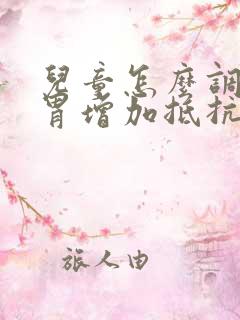 兒童怎麼調
胃增加抵抗
旅人由